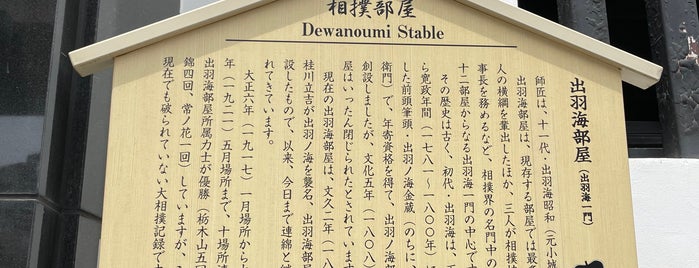 相撲部屋
Dewanoumi Stable
出羽海部屋(出羽海一門)
師匠は、十一代・出羽海昭和(元小城
出羽海部屋は、現存する部屋では最多
人の横綱を輩出したほか、三人が相撲
事長を務めるなど、相撲界の名門中の
十二部屋からなる出羽海一門の中心で
その歴史は古く、初代・出羽海は、
ら寛政年間(一七八一〜一八〇〇年)に
した前頭筆頭・出羽ノ海金蔵(のちに、
衛門)で、年寄資格を得て、出羽ノ海
創設しましたが、文化五年(一八〇八)
屋はいったん閉じられたとされています
現在の出羽海部屋は、文久二年(一八
桂川立吉が出羽ノ海を襲名、出羽海部屋
設したもので、以来、今日まで連綿と
れてきています。
大正六年(一九一七)一月場所から
年(一九二一)五月場所まで、十場所連
出羽海部屋所属力士が優勝(栃木山五回
錦四回、常ノ花一回)していますが、
現在でも破られていない大相撲記録で